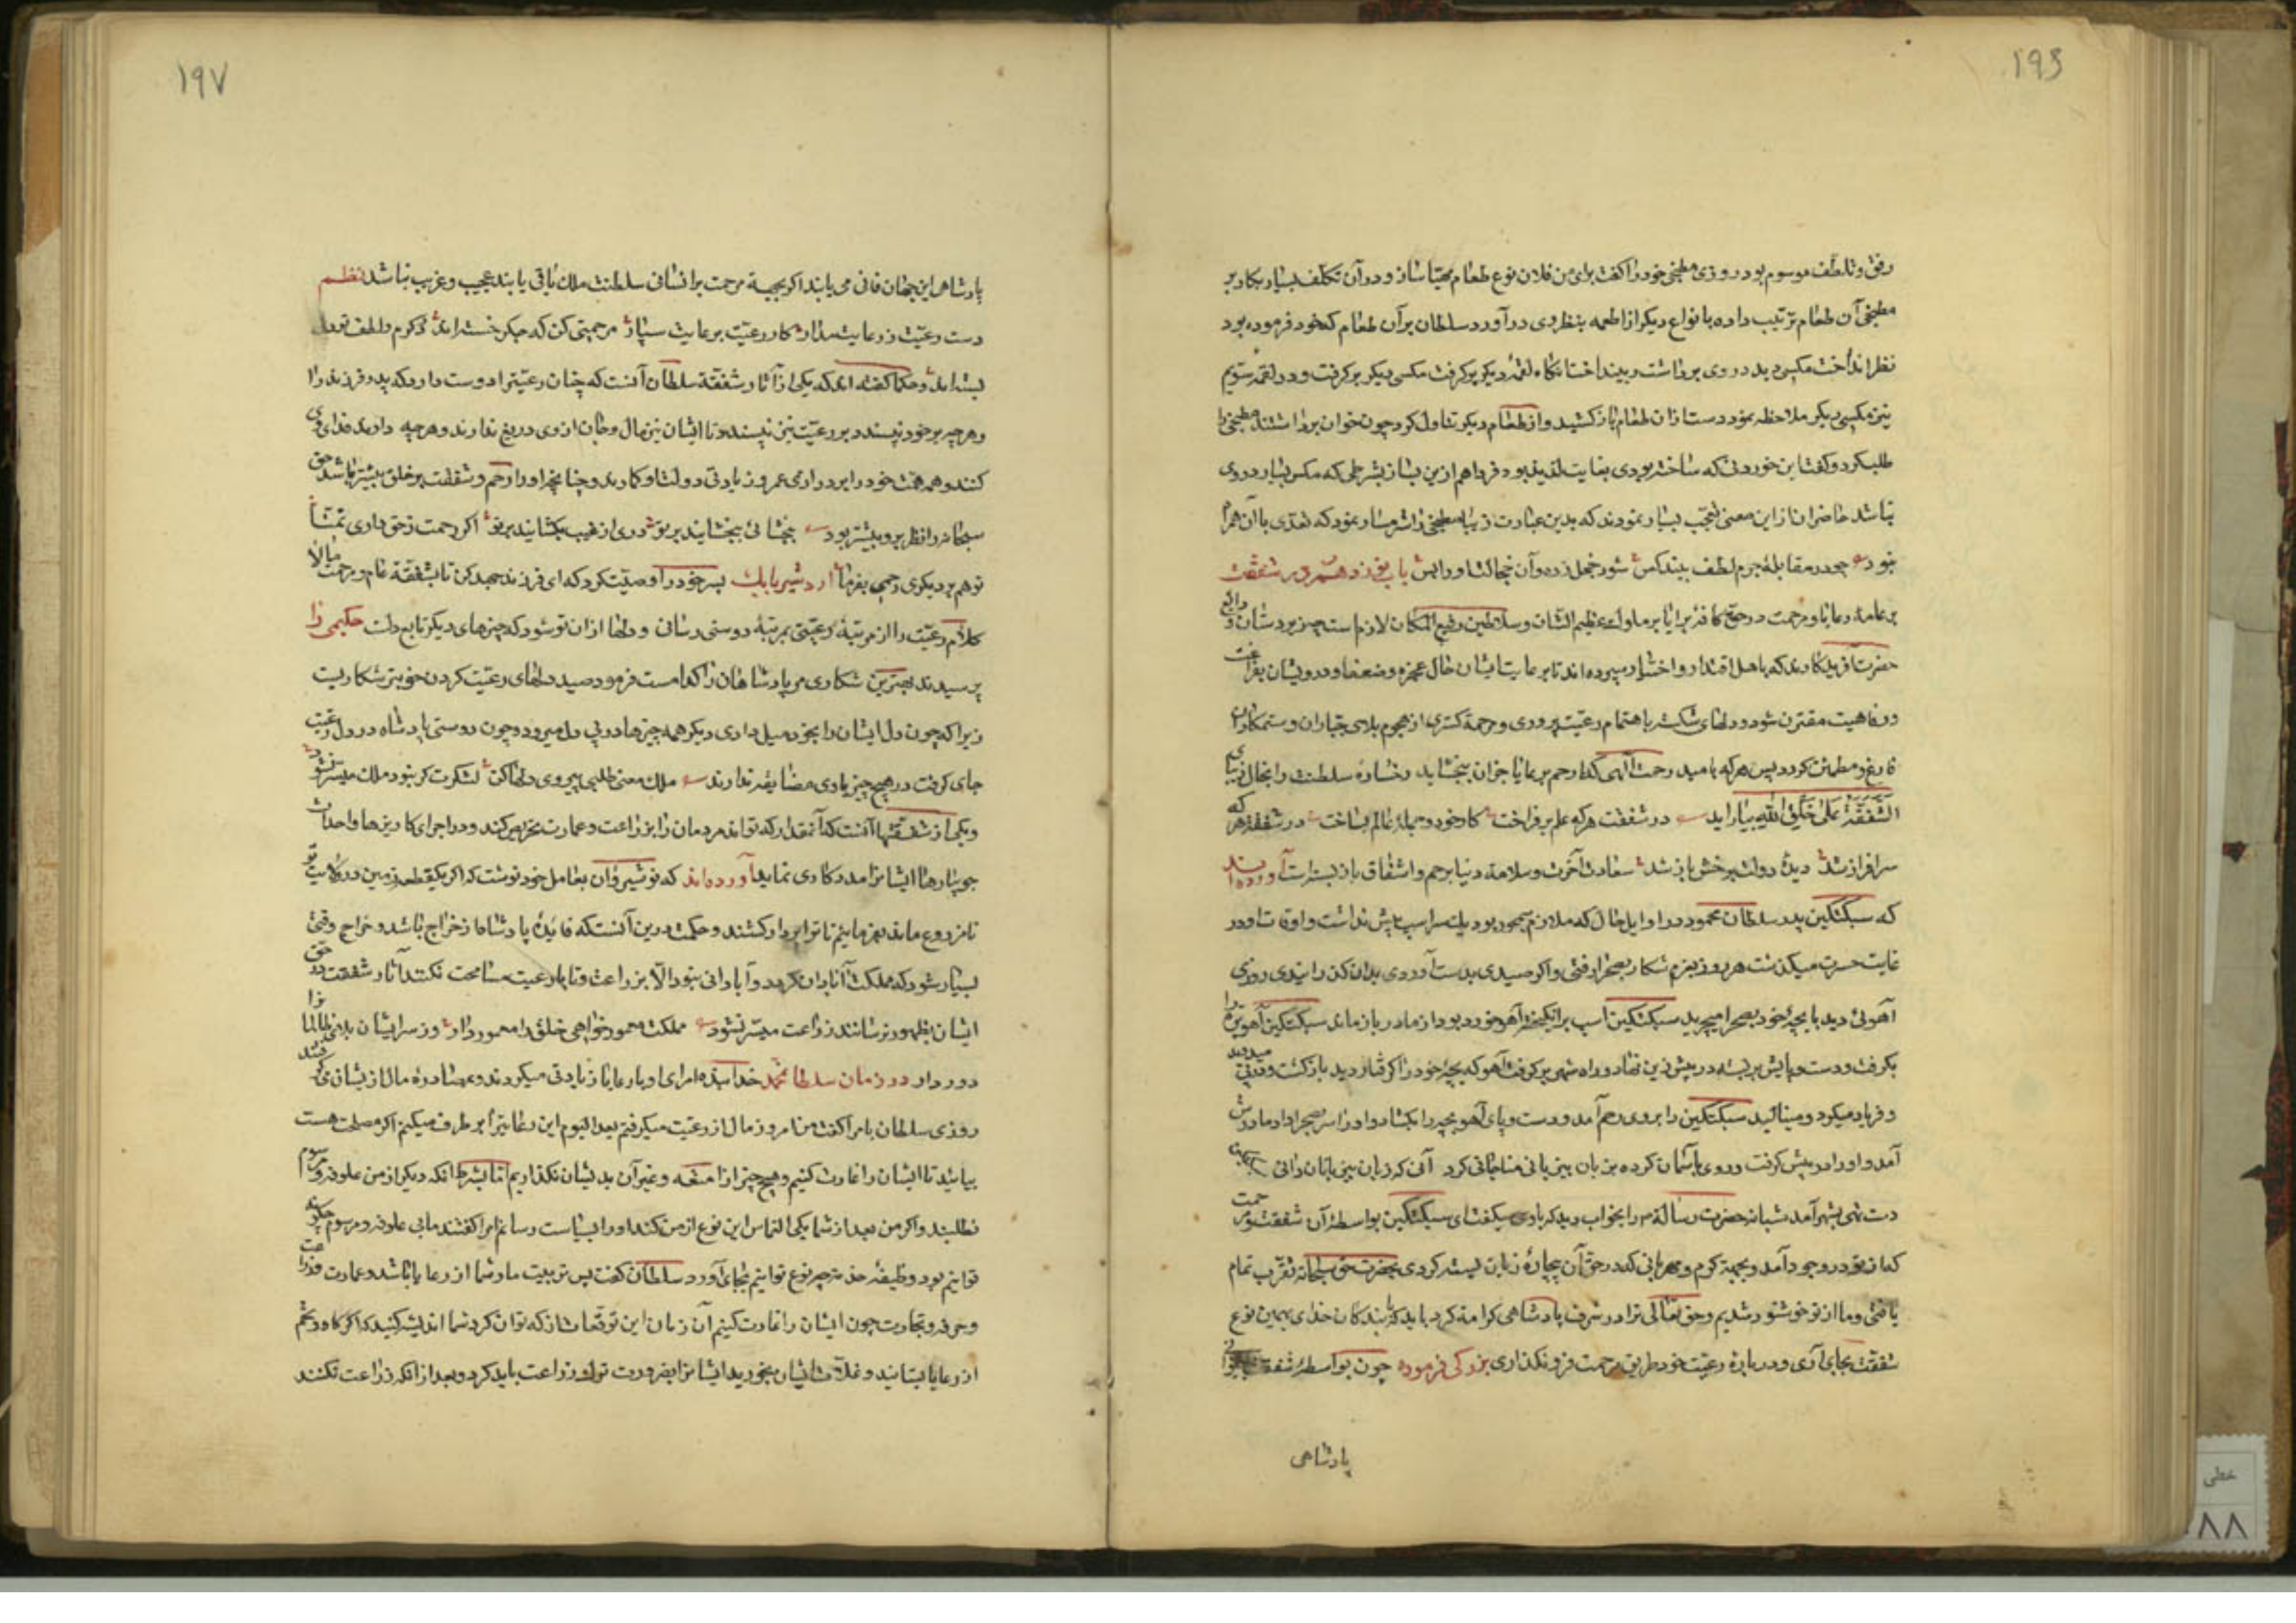 ۱۹۶
رفق و تلطف موسوم بود روزی مطبخی خود را گفت برای من فلان نوع طعام مهیا ساز و در آن تکلف بسیار بکار بر
مطبخی آن طعام ترتیب داده با انواع دیگر از اطعمه بنظر وی در آورد سلطان بر آن طعام که خود فرموده بود
نظر انداخت مکسی دید در وی برداشت و بینداخت آنگاه لقمهٔ دیگر برگرفت مکسی دیگر برگرفت و در لقمهٔ سیّوم
نیز مکسی دیگر ملاحظه نمود دست از ان طعام باز کشید و از طعام دیگر تناول کرد چون خوان برداشتند مطبخی را
طلب کرد و گفت این خوردنی که ساخته بودی بغایت لذیذ بود فردا هم ازین بساز بشرطی که مکس بسیار در وی
نباشد حاضران از این معنی تعجب بسیار نمودند که بدین عبارت زیبا مطبخی را شرمسار نمود که تعدّی با آن همراه
نبود چو در مقابلهٔ جرم لطف بیند کس شود خجل زده و آن خجالت او را بس باب نوزدهم در شفقت
بر عامهٔ رعایا و مرحمت در حق کافهٔ برایا بر ملوک عظیم الشان و سلاطین رفیع المکان لازم است چه زیردستان ودایع
حضرت آفریدگارند که باهل اقتدار و اختیار سپرده اند تا برعایت ایشان حال عجزه و ضعفا و درویشان بفراغت
و رفاهیت مقترن شود و دلهای شکسته باهتمام رعیت پروری و مرحمت گستری از هجوم بلای جباران و ستمکاران
فارغ و مطمئن گردد پس هر که بامید رحمت الهی گذارد رحم بر رعایا جزان ببخشاید رخسارهٔ سلطنت را بخال زیبای
الشَّفَقَةُ عَلی خَلقِ اللّٰهِ بیاراید در شفقت هر که علم بر فراخت کار خود و جملهٔ عالم بساخت در شفقة هر که
سرافراز شد دیدهٔ دولت برخش باز شد سعادت آخرت و سلامت دنیا برحم و اشفاق باز بسته است آورده اند
که سبکتگین پدر سلطان محمود در اوایل حال که ملازم سمجور بود یک سر اسپ بیش نداشت و اوقات او در
غایت عسرت میگذشت هر روز بعزم شکار بصحرا رفتی و اگر صیدی بدست آوردی بدان گذرانیدی روزی
آهوئی دید با بچهٔ خود بصحرا میچرید سبکتگین اسپ برانگیخت آهو خورد بود از مادر باز ماند سبکتگین آهو بره را
بگرفت و دست و پایش بر بسته در پیش زین نهاد و راه شهر بر گرفت آهو که بچهٔ خود را گرفتار دید بازگشت و در پی میدوید
و فریاد میکرد و مینالید سبکتگین را بر وی رحم آمد و دست و پای آهو بچه را بکشاد و او را سر بصحرا داد مادرش
آمد و او را در پیش گرفت و روی بآسمان کرده بزبان بیزبانی مناجاتی کرد آنی که زبان بیزبانان دانی سبکتگین
دست تهی بشهر آمد شبانه حضرت رسالة را بخواب دید که با وی میگفت ای سبکتگین بواسطهٔ آن شفقت و مرحمت
که از تو در وجود آمد و بجهة کرم و مهربانی که در حق آن بیچارهٔ زبان بسته کردی بحضرت حق سبحانه تقرب تمام
یافتی و ما از تو خوشنود شدیم و حق تعالی ترا در شرف پادشاهی کرامة کرد باید که با بندگان خدای بهمین نوع
شفقت بجای آری و در بارهٔ رعیت خود طریق مرحمت فرو نگذاری بزرگی فرموده چون بواسطهٔ شفقت
پادشاهی
۱۹۷
پادشاهی این جهان فانی می یابند اگر بجهة مرحمت بر انسانی سلطنت ملک باقی یابند عجیب و غریب نباشد نظم
دست رعیّت ز رعایت مدار کار رعیّت برعایت سپار مرحمتی کن که جگر خسته اند در کرم و لطف تو دل
بسته اند و حکما گفته اند که یکی از آثار شفقة سلطان آنست که چنان رعیّت را دوست دارد که پدر فرزند را
و هر چه بر خود نپسندد بر رعیّت نیز نپسندد تا ایشان نیز مال و جان از وی دریغ ندارند و هر چه دارند فدای وی
کنند و همه همّت خود را بر درازی عمر و زیادتی دولت او گمارند و چنانچه او را رحم و شفقت بر خلق بیشتر باشد حق
سبحانه را نظر برو بیشتر بود ببخشای تا ببخشایند بر تو دری از غیب بکشایند بر تو اگر رحمت ز حق داری تمنّا
تو هم بر دیگری رحمی بفرما اردشیر بابک پسر خود را وصیّت کرد که ای فرزند جهد کن تا بشفقة عام و مرحمت مالا
کلام رعیّت را از مرتبهٔ رعیّتی بمرتبهٔ دوستی رسانی و دلها از ان تو شود که چیزهای دیگر تابع دلست حکیمی را
پرسیدند بهترین شکاری مر پادشاهان را کدامست فرمود صید دلهای رعیّت کردن خوبتر شکاریست
زیرا که چون دل ایشان را بخود میل دادی دیگر همه چیزها در پی دل میرود و چون دوستی پادشاه در دل رعیّت
جای گرفت در هیچ چیز با وی مضایقه ندارند ملک معنی طلبی پیروی دلها کن لشکرت گر نبود ملک میسّر نشود
و یکی از شفقتها آنست که آنمقدار که تواند مردمان را بزراعت و عمارت تحریص کند و در اجرای کاریزها و احداث
جویبارها ایشانرا مددکاری نماید آورده اند که نوشیروان بعامل خود نوشت که اگر یک قطعه زمین در ولایت تو
نامزروع ماند بفرمایم تا ترا بر دار کشند و حکمت درین آنست که فائدهٔ پادشاه از خراج باشد و خراج وقتی
بسیار شود که مملکت آبادان گردد و آبادانی نبود الّا بزراعت و تا با رعیت مسامحت نکنند آثار شفقت در حق
ایشان بظهور نرسانند زراعت میسّر نشود مملکت معمور خواهی خلق را معمور دار وز سر ایشان بلای ظالمان را
دور دار در زمان سلطان محمد خدابنده امرای او بارعایا زیادتی میکردند و بمصادره مال ازیشان می گرفتند
روزی سلطان با امرا گفت من تا امروز مال از رعیّت میگرفتم بعد الیوم این رعایت را بر طرف میکنم اگر مصلحت هست
بیائید تا ایشان را غارت کنیم و هیچ چیز از امتعه و غیر آن بدیشان نگذاریم اما بشرط انکه دیگر از من علوفه و مرسوم
نطلبند و اگر من بعد از شما یکی التماس این نوع از من کند او را بسیاست رسانم امرا گفتند ما بی علوفه و مرسوم چگونه
توانیم بود و وظیفهٔ خدمت بچه نوع توانیم بجای آورد سلطان گفت پس تربیت ما و شما از رعایا باشد و عمارت و زراعت
و حرفه و تجارت چون ایشان را غارت کنیم آن زمان این توقعات از که توان کرد شما اندیشه کنید که اگر گاو و تخم
از رعایا بستانید و غلات ایشان بخورید ایشانرا بضرورت ترک زراعت باید کرد و بعد از انکه زراعت نکنند
خطی
۸۸